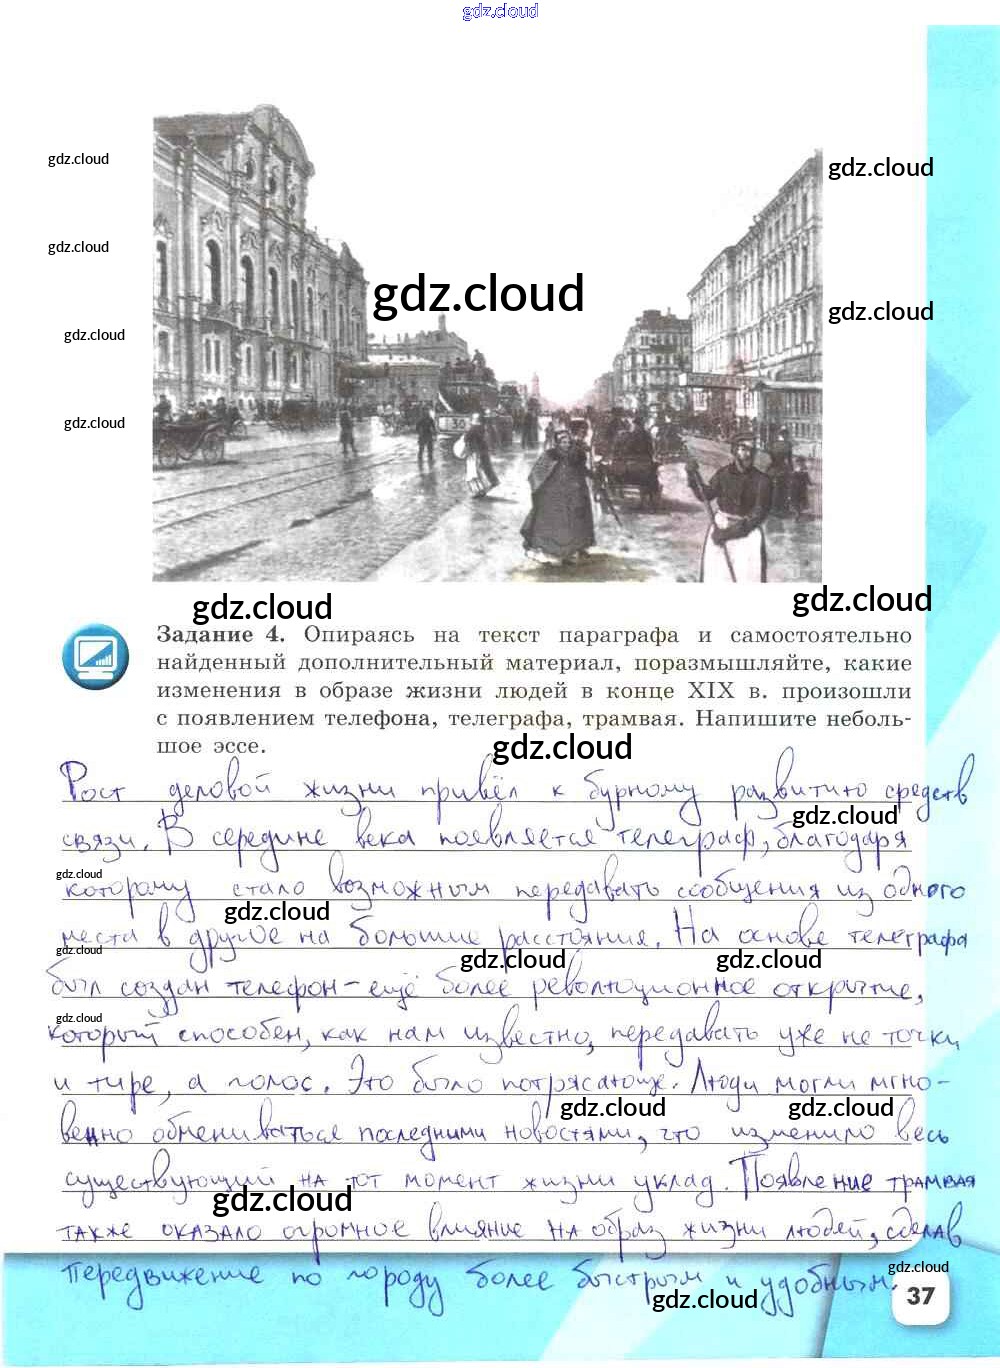 gdz.cloud
gdz.cloud
gdz.cloud
gdz.cloud
gdz.cloud
gdz.cloud
gdz.cloud
gdz.cloud
30
gdz.cloud
gdz.cloud
Задание 4. Опираясь на текст параграфа и самостоятельно
найденный дополнительный материал, поразмышляйте, какие
изменения в образе жизни людей в конце XIX в. произошли
с появлением телефона, телеграфа, трамвая. Напишите неболь-
шое эссе.
gdz.cloud
Рост деловой жизни привёл к бурному развитию средств
gdz.cloud
связи. В середине века появляется телеграф, благодаря
gdz.cloud
которому стало возможным передавать сообщения из одного
gdz.cloud
места в другое на большие расстояния. На основе телеграфа
gdz.cloud
gdz.cloud
gdz.cloud
был создан телефон - ещё более революционное открытие,
gdz.cloud
который способен, как нам известно, передавать уже не точки
и тире, а голос. Это было потрясающе. Люди могли мгно-
gdz.cloud
gdz.cloud
венно обмениваться последними новостями, что изменило весь
существующий на тот момент жизни уклад. Появление трамвая
gdz.cloud
также оказало огромное влияние на образ жизни людей, сделав
gdz.cloud
передвижение по городу более быстрым и удобным.
gdz.cloud
37